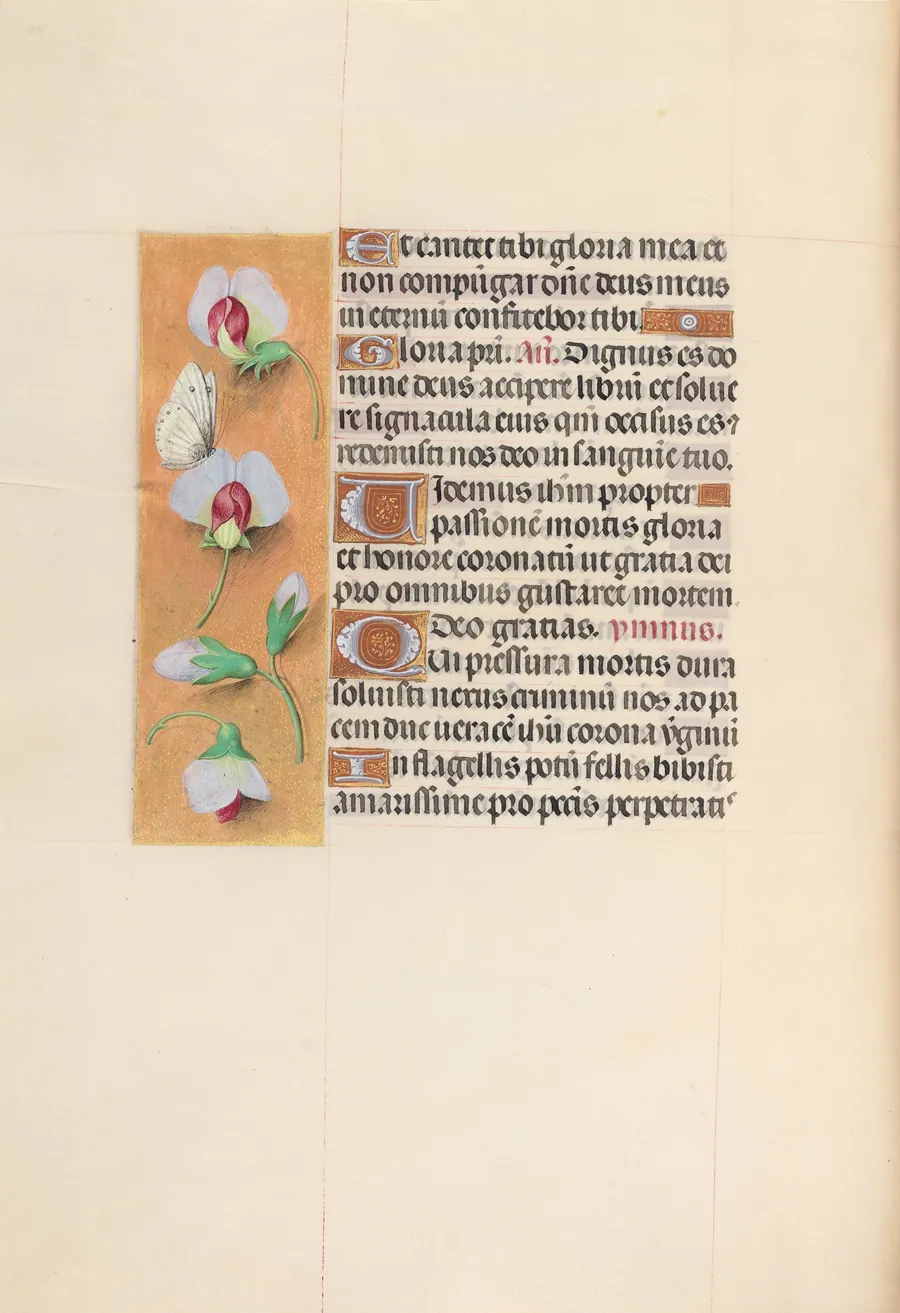 Et cantet tibi gloria mea et
non compūgar dn̄e deus meus
in eternū confitebor tibi.
Gloria pr̄i. An̄. Dignus es do
mine deus accipere librū et solue
re signacula eius qm̄ occisus es ⁊
redemisti nos deo in sanguīe tuo.
Uidemus ihm̄ propter
passionē mortis gloria
et honore coronatū ut gratia dei
pro omnibus gustaret mortem.
Deo gratias. ymnus.
Qui pressura mortis dura
soluisti nexus criminū nos ad pa
cem duc ueracē ihū corona v̄ginū
In flagellis potū fellis bibisti
amarissime pro pecc̄is perpetratis